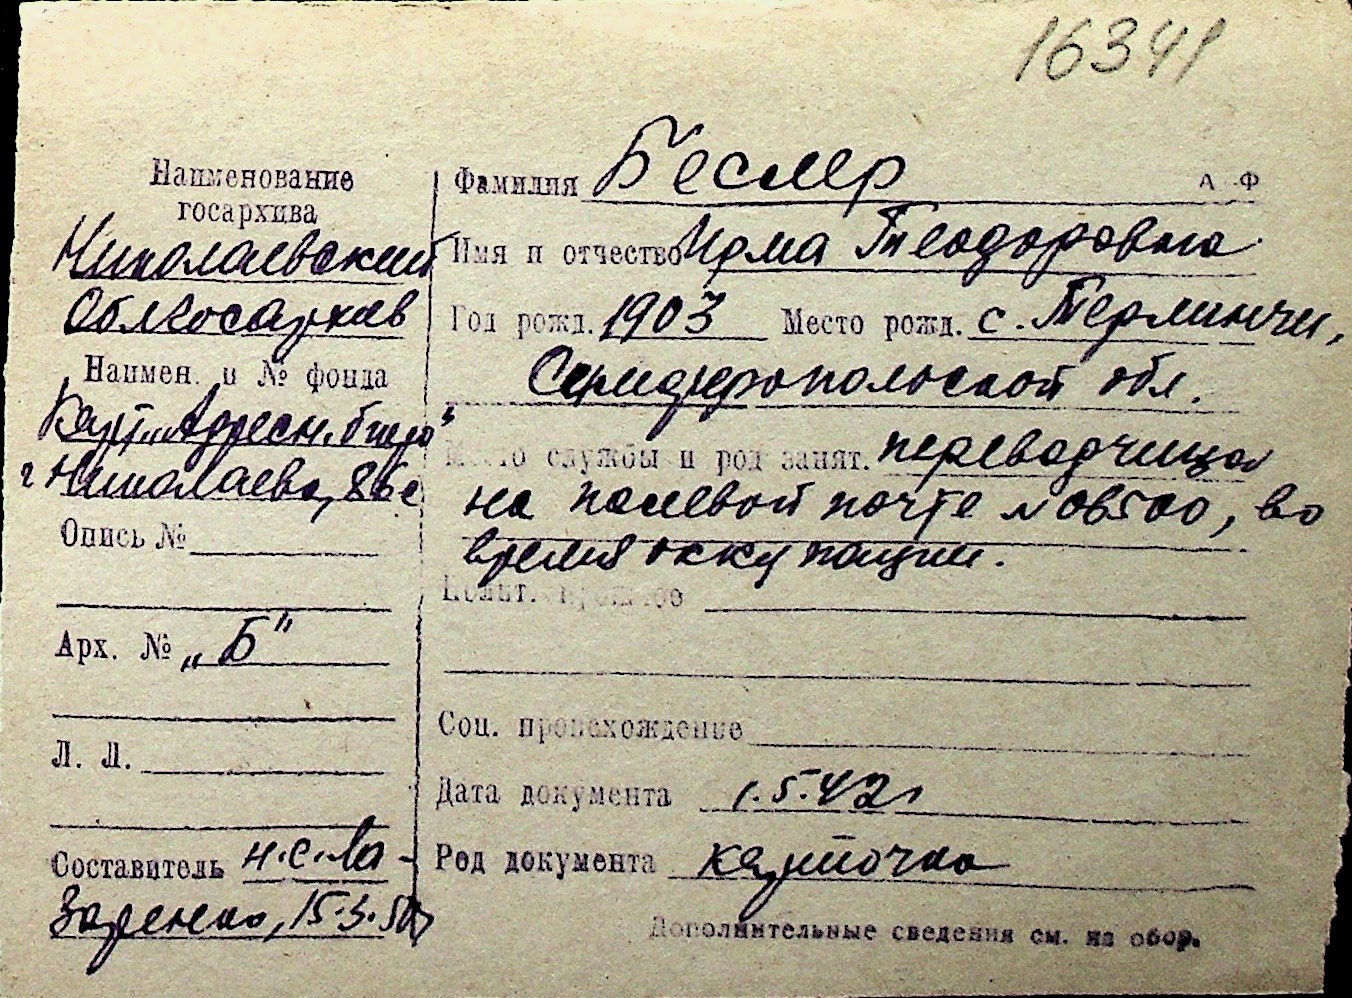 16341
Наименование
госархива
Николаевский
Облгосархив
Наимен. и № фонда
Карт. „Адресн. бюро"
г Николаева, 86с
Опись №
Арх. № „Б"
Л. Л.
Составитель Н.С. Ла-
заренко, 15.3.50
Фамилия Беслер А Ф
Имя и отчество Ирма Теодоровна
Год рожд. 1903 Место рожд. с. Терминчи,
Симферопольской обл.
Место службы и род занят. переводчица
на полевой почте N 06500, во
время оккупации.
Полит. прошлое
Соц. происхождение
Дата документа 1.5.42г
Род документа карточка
Дополнительные сведения см. на обор.